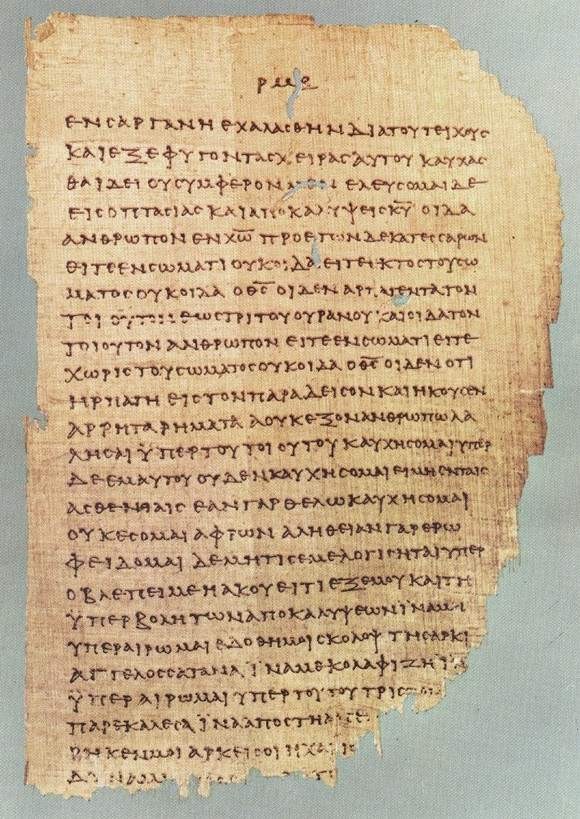 ΡΜΕ
ΕΝϹΑΡΓΑΝΗΕΧΑΛΑϹΘΗΝΔΙΑΤΟΥΤΕΙΧΟΥϹ
ΚΑΙΕΞΕΦΥΓΟΝΤΑϹΧΕΙΡΑϹΑΥΤΟΥ ΚΑΥΧΑϹ
ΘΑΙΔΕΙ ΟΥϹΥΜΦΕΡΟΝ ΕΛΕΥϹΟΜΑΙΔΕ
ΕΙϹΟΠΤΑϹΙΑϹ ΚΑΙΑΠΟΚΑΛΥΨΕΙϹΚ̅Υ̅ ΟΙΔΑ
ΑΝΘΡΩΠΟΝ ΕΝΧ̅Ω̅ ΠΡΟΕΤΩΝΔΕΚΑΤΕϹϹΑΡΩΝ
ΕΙΤΕΕΝϹΩΜΑΤΙΟΥΚΟΙΔΑΕΙΤΕΕΚΤΟϹΤΟΥϹΩ
ΜΑΤΟϹΟΥΚΟΙΔΑ ΟΘ̅Ϲ̅ ΟΙΔΕΝΑΡΠΑΓΕΝΤΑΤΟΝ
ΤΟΙΟΥΤΟΝΕΩϹΤΡΙΤΟΥΟΥΡΑΝΟΥ ΚΑΙΟΙΔΑΤΟΝ
ΤΟΙΟΥΤΟΝ ΑΝΘΡΩΠΟΝ ΕΙΤΕΕΝϹΩΜΑΤΙΕΙΤΕ
ΧΩΡΙϹΤΟΥϹΩΜΑΤΟϹΟΥΚΟΙΔΑ ΟΘ̅Ϲ̅ΟΙΔΕΝ ΟΤΙ
ΗΡΠΑΓΗ ΕΙϹΤΟΝΠΑΡΑΔΕΙϹΟΝΚΑΙΗΚΟΥϹΕΝ
ΑΡΡΗΤΑΡΗΜΑΤΑ ΑΟΥΚΕΞΟΝΑΝΘΡΩΠΩΛΑ
ΛΗϹΑΙ ΫΠΕΡΤΟΥΤΟΙΟΥΤΟΥ ΚΑΥΧΗϹΟΜΑΙΥΠΕΡ
ΔΕΕΜΑΥΤΟΥ ΟΥΔΕΝΚΑΥΧΗϹΟΜΑΙΕΙΜΗΕΝΤΑΙϹ
ΑϹΘΕΝΙΑΙϹ ΕΑΝΓΑΡΘΕΛΩΚΑΥΧΗϹΟΜΑΙ
ΟΥΚΕϹΟΜΑΙ ΑΦΡΩΝ ΑΛΗΘΕΙΑΝΓΑΡΕΡΩ
ΦΕΙΔΟΜΑΙ ΔΕΜΗΤΙϹΕΜΕΛΟΓΙϹΗΤΑΙΥΠΕΡ
ΟΒΛΕΠΕΙΜΕΗΑΚΟΥΕΙΤΙΕΞΕΜΟΥ ΚΑΙΤΗ
ΫΠΕΡΒΟΛΗΤΩΝΑΠΟΚΑΛΥΨΕΩΝΪΝΑΜΗ
ΥΠΕΡΑΙΡΩΜΑΙΕΔΟΘΗΜΟΙϹΚΟΛΟΨ ΤΗϹΑΡΚΙ
ΑΓΓΕΛΟϹϹΑΤΑΝΑ ΪΝΑΜΕΚΟΛΑΦΙΖΗΪΝ
ΫΠΕΡΑΙΡΩΜΑΙ ΥΠΕΡΤΟΥΤΟΥΤΡΙϹ
ΠΑΡΕΚΑΛΕϹΑ ΪΝΑΑΠΟϹΤΗΑΠΕ
ΡΗΚΕΝΜΑΙ ΑΡΚΕΙϹΟΙΗΧΑΡΙϹ
ΔΥΝΑΜ